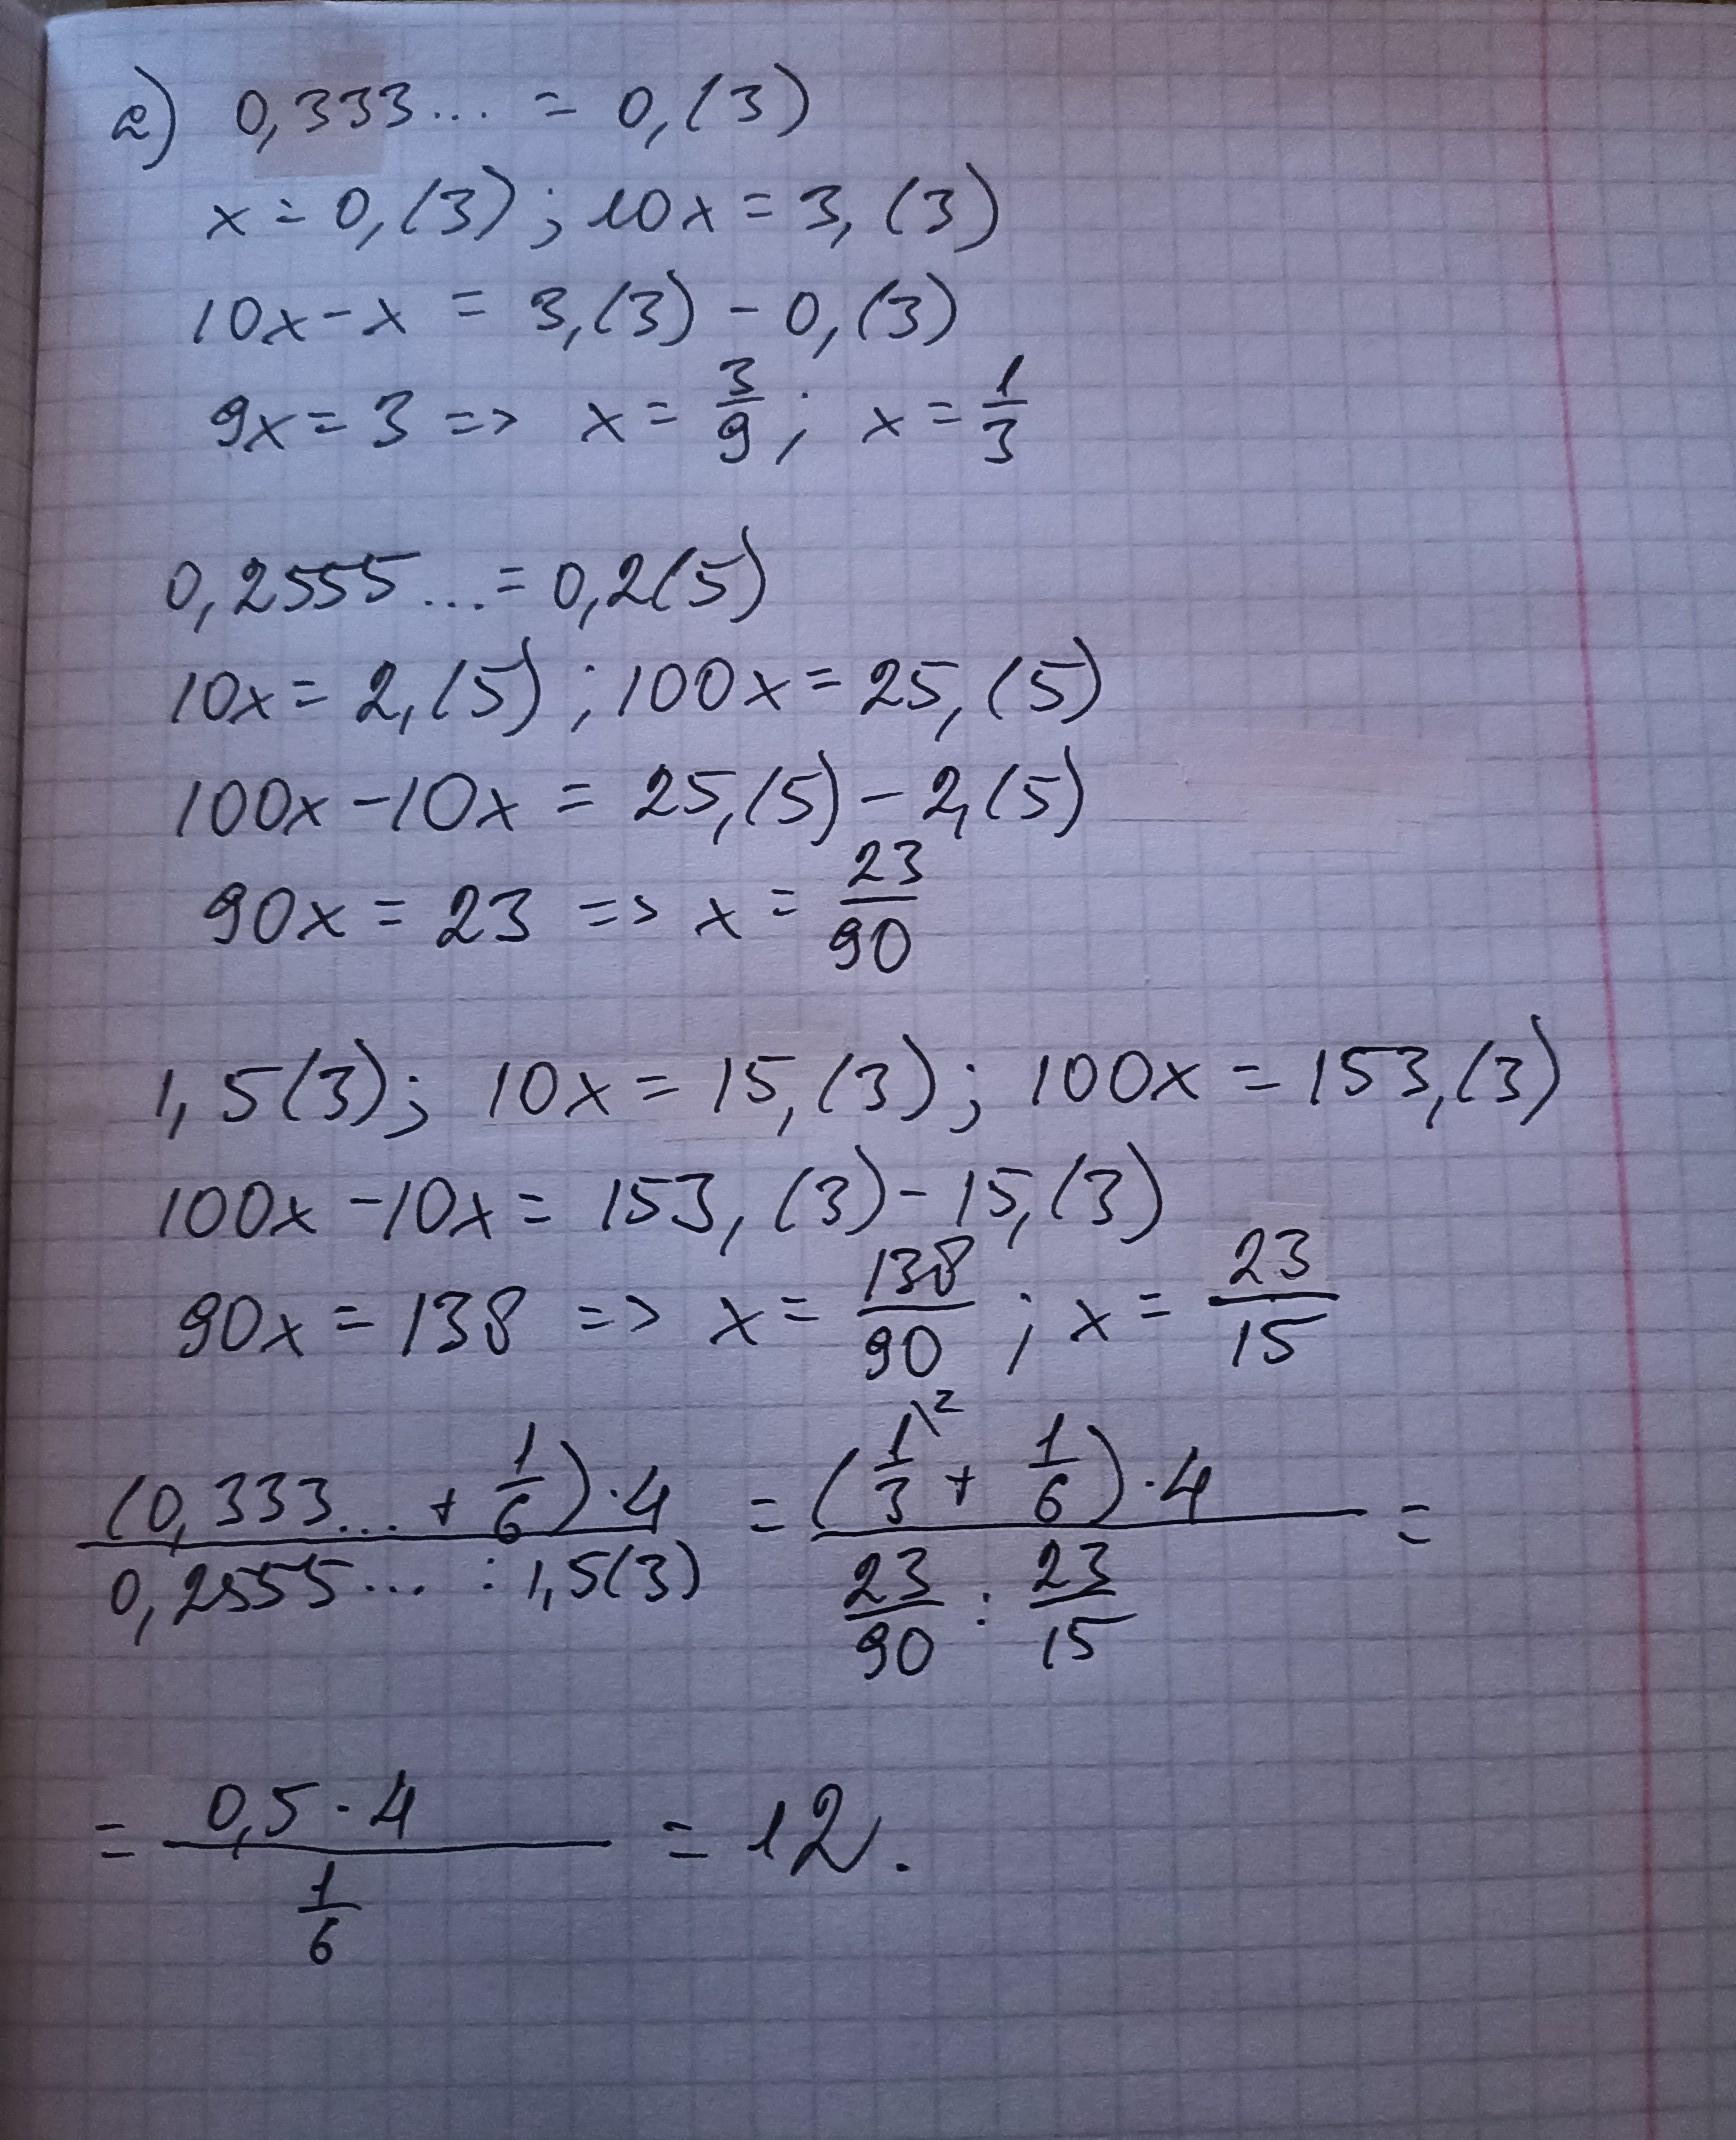 а) 0,333... = 0,(3)
x = 0,(3); 10x = 3,(3)
10x - x = 3,(3) - 0,(3)
9x = 3 => x = 3/9; x = 1/3
0,2555... = 0,2(5)
10x = 2,(5); 100x = 25,(5)
100x - 10x = 25,(5) - 2,(5)
90x = 23 => x = 23/90
1,5(3); 10x = 15,(3); 100x = 153,(3)
100x - 10x = 153,(3) - 15,(3)
90x = 138 => x = 138/90; x = 23/15
((0,333... + 1/6) · 4) / (0,2555... : 1,5(3)) = ((1\2/3 + 1/6) · 4) / (23/90 : 23/15) =
= (0,5 · 4) / (1/6) = 12.